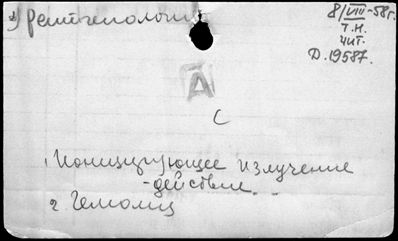 *) Рентгенология
8/VIII-58г.
Т.Н.
чит.
Д.19587.
А
С
1. Ионизирующее излучение
-действие
2. Гемолиз